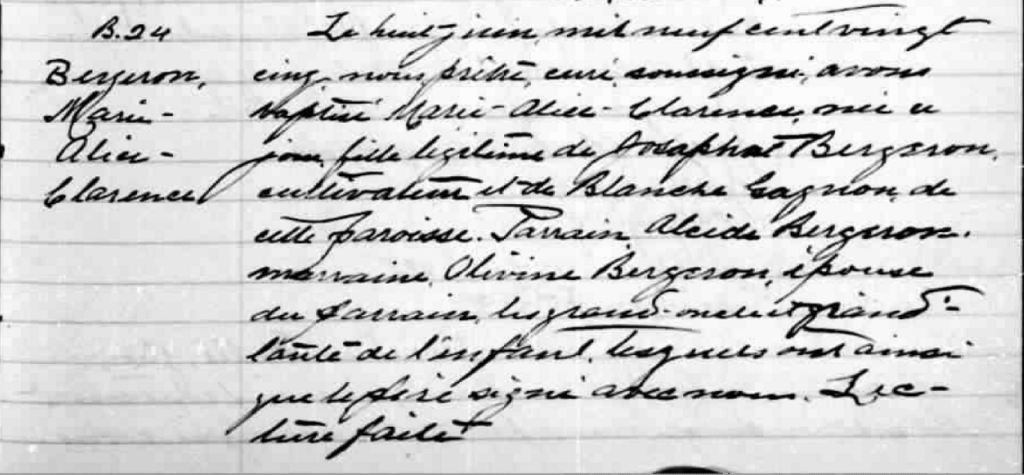 B.24
Bergeron,
Marie-
Alice-
Clarence
Le huit juin, mil neuf cent vingt
cinq, nous, prêtre, curé soussigné, avons
baptisé Marie-Alice-Clarence, née ce
jour, fille légitime de Josaphat Bergeron,
cultivateur et de Blanche Gagnon, de
cette paroisse. Parrain Alcide Bergeron.
marraine, Olivine Bergeron, épouse
du parrain, les grand-oncle et grand'-
tante de l'enfant, lesquels ont ainsi
que le père signé avec nous. Lec-
ture faite